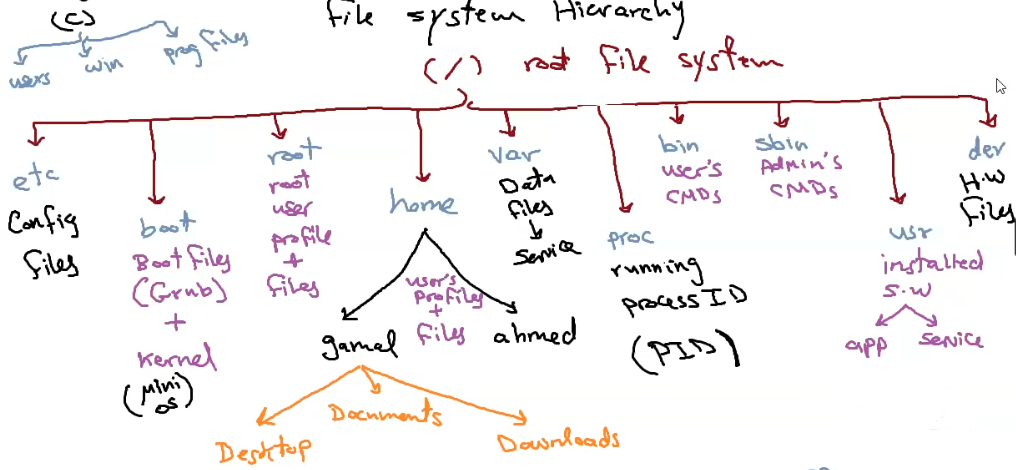 File system Hierarchy
(C)
users
win
prog files
(/) root file system
etc
Config
files
boot
Boot files
(Grub)
+
Kernel
(Mini
OS)
root
root
user
profile
+
files
home
user's
profiles
+
files
gamal
ahmed
Desktop
Documents
Downloads
var
Data
files
Service
proc
running
process ID
(PID)
bin
user's
CMDs
sbin
Admin's
CMDs
usr
installed
S.W
app
service
dev
H.W
files